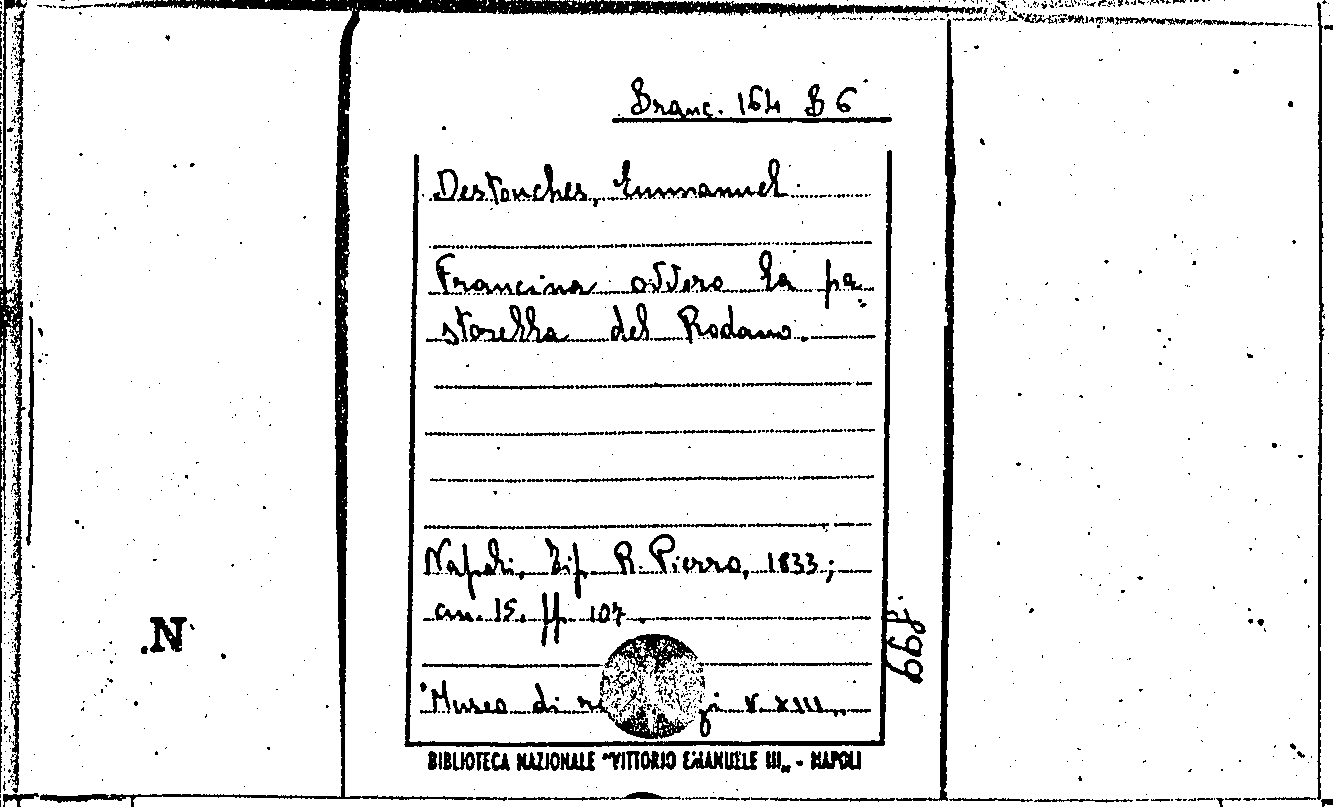 Branc. 164 B 6
Destouches, Emmanuel.
Francina ovvero la pa-
storella del Rodano.
Napoli, Tip. R. Pierro, 1833;
cm. 15. pp. 107.
"Museo di zi V. XIII„
.N
BIBLIOTECA NAZIONALE "VITTORIO EMANUELE III„ - NAPOLI